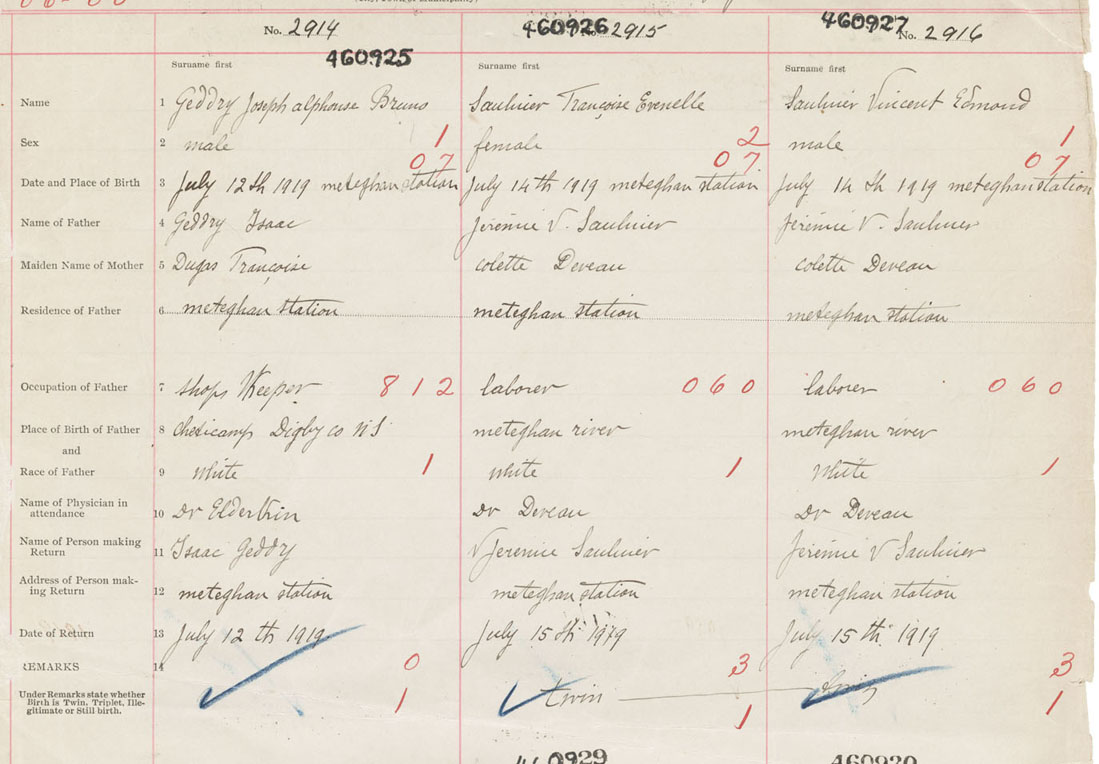 No. 2914 460926 No. 2915 460927 No. 2916
460925
Surname first Surname first Surname first
Name 1 Geddry Joseph alphonse Bruno Saulnier Françoise Evenelle Saulnier Vincent Edmond
Sex 2 male 1 female 2 male 1
07 07 07
Date and Place of Birth 3 July 12th 1919 meteghan station July 14th 1919 meteghan station July 14th 1919 meteghan station
Name of Father 4 Geddry Isaac Jérémie V. Saulnier Jérémie V. Saulnier
Maiden Name of Mother 5 Dugas Françoise colette Deveau colette Deveau
Residence of Father 6 meteghan station meteghan station meteghan station
Occupation of Father 7 shops Keeper 812 laborer 060 laborer 060
Place of Birth of Father 8 Digby co NS meteghan river meteghan river
and
Race of Father 9 White 1 White 1 White 1
Name of Physician in
attendance 10 Dr Dr Deveau Dr Deveau
Name of Person making
Return 11 Isaac Geddy V Jeremie Saulnier Jérémie V Saulnier
Address of Person mak-
ing Return 12 meteghan station meteghan station meteghan station
Date of Return 13 July 12th 1919 July 15th 1919 July 15th 1919
REMARKS 14 0 3 3
Under Remarks state whether
Birth is Twin, Triplet, Ille-
gitimate or Still birth. 1 twin 1 twin 1
460929 460930